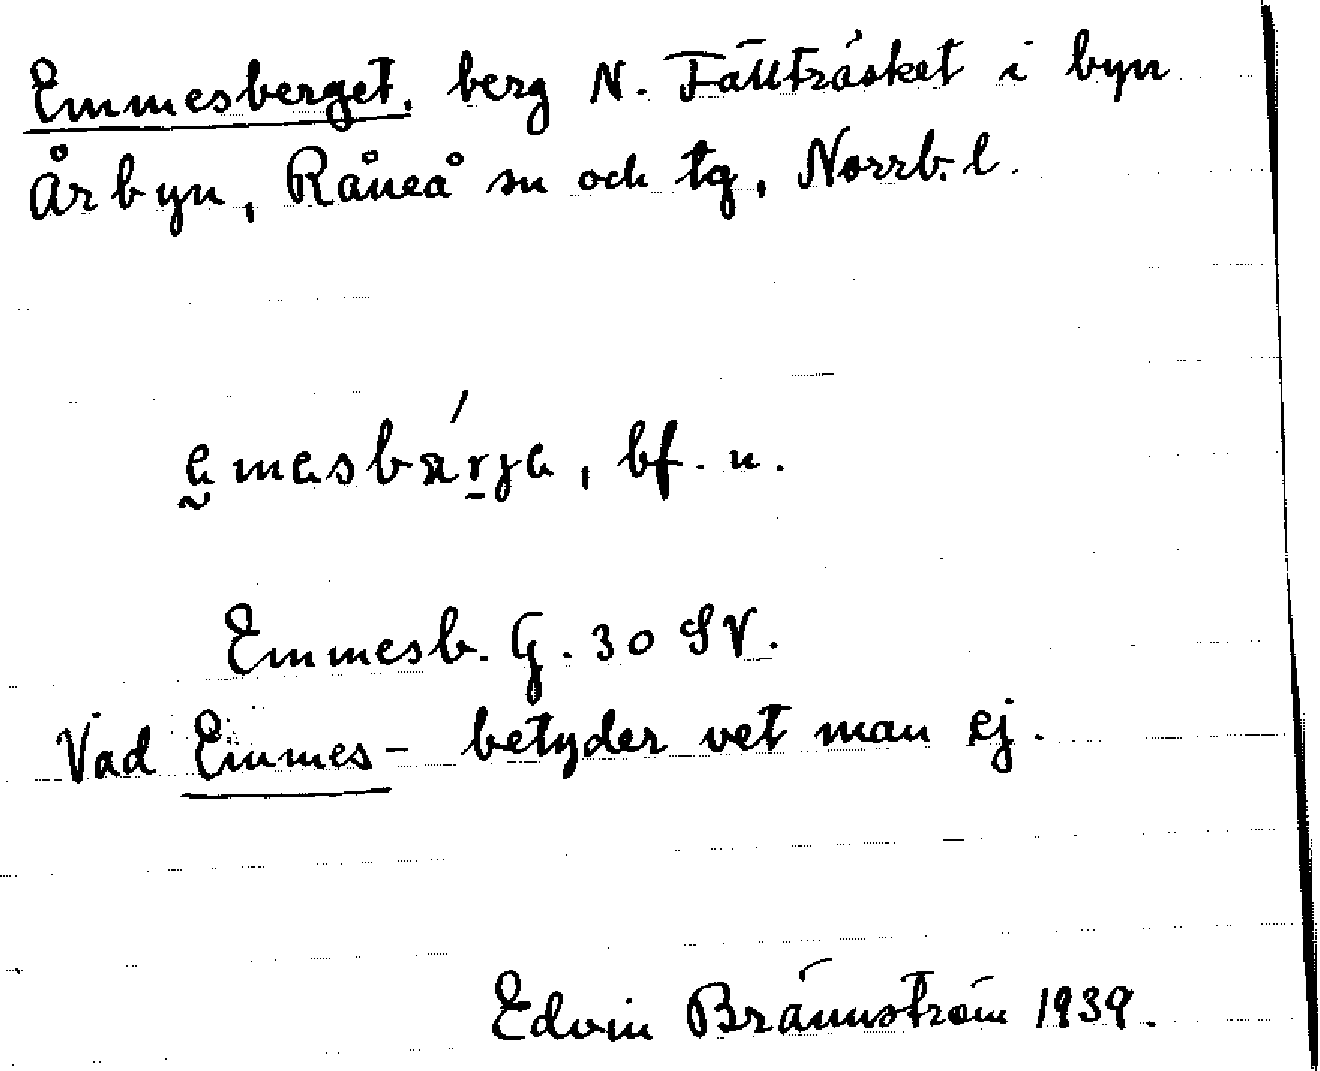 Emmesberget, berg N. Fällträsket i byn
Årbyn, Råneå sn och tg, Norrb. l.
bf. n.
Emmesb. G. 30 SV.
Vad Emmes- betyder vet man ej.
Edvin Brännström 1939.